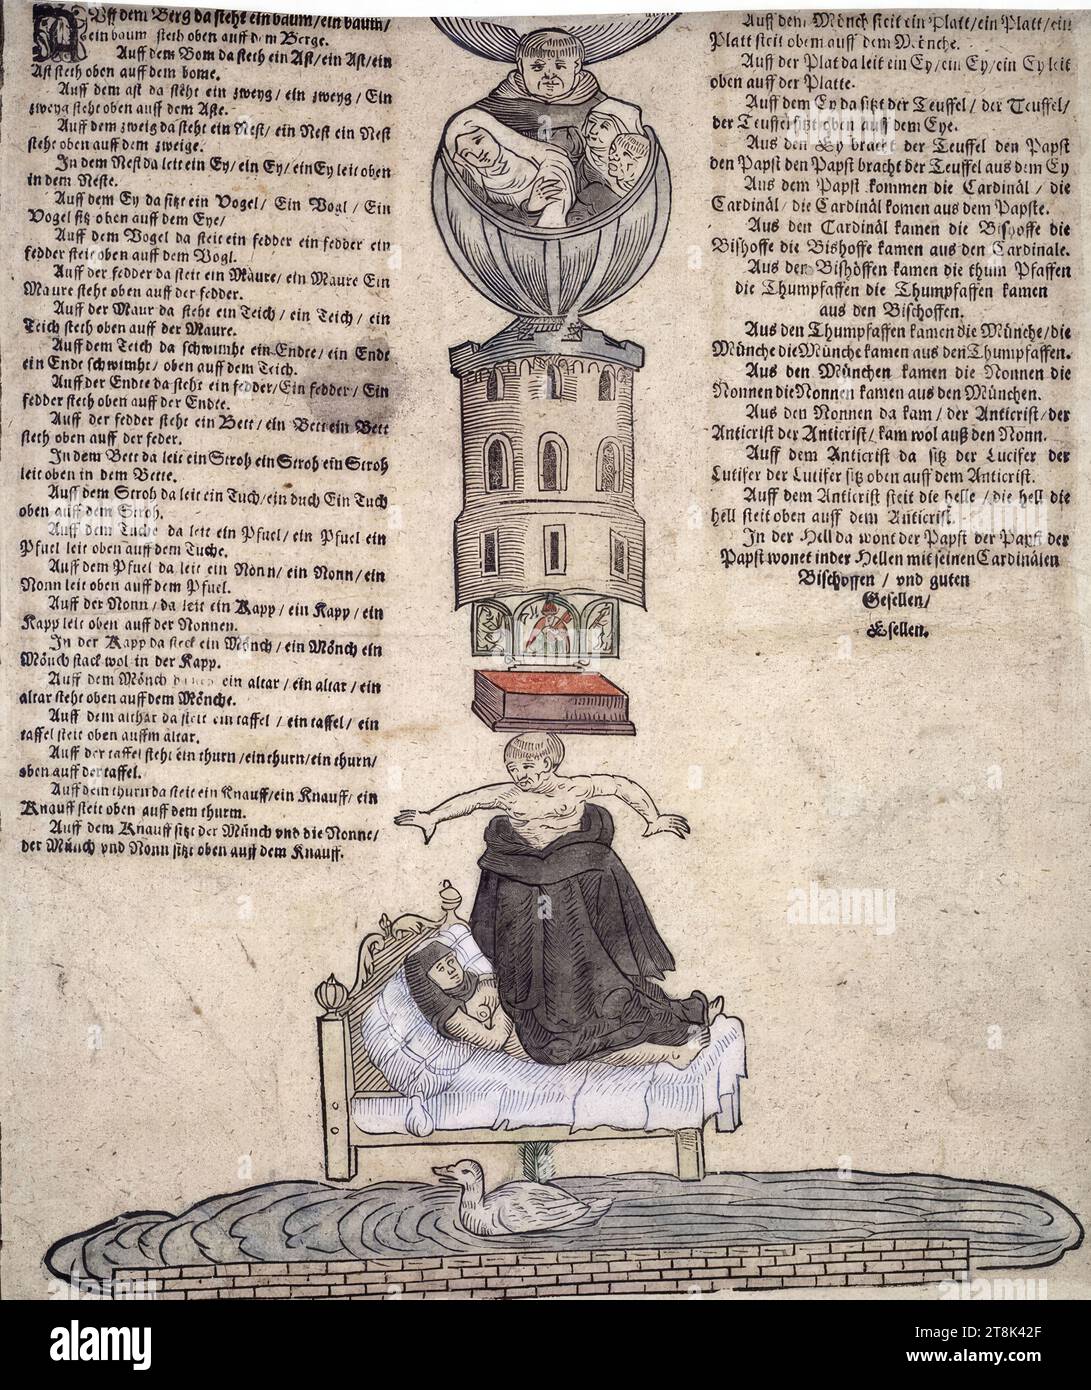 AUff dem Berg da steht ein baum/ein baum/
ein baum steth oben auff dem Berge.
Auff dem Bom da stech ein Ast/ein Ast/ein
Ast stech oben auff dem bome.
Auff dem ast da stëht ein zweyg/ein zweyg/Ein
zweyg steht oben auff dem Aste.
Auff dem zweig da steht ein Nest/ein Nest ein Nest
stehe oben auff dem zweige.
In dem Nest da leit ein Ey/ein Ey/ein Ey leit oben
in dem Neste.
Auff dem Ey da sitzt ein Vogel/Ein Vogl/Ein
Vogel sitz oben auff dem Eye/
Auff dem Vogel da steit ein fedder ein fedder ein
fedder steit oben auff dem Vogl.
Auff der fedder da steit ein Maure/ein Maure Ein
Maure steht oben auff der fedder.
Auff der Maur da steht ein Teich/ein Teich/ein
Teich stech oben auff der Maure.
Auff dem Teich da schwimht ein Endte/ein Ende
ein Ende schwimht/oben auff dem Teich.
Auff der Endte da steht ein fedder/Ein fedder/Ein
fedder stech oben auff der Endte.
Auff der fedder steht ein Bett/ein Bett ein Bett
stech oben auff der feder.
In dem Bett da leit ein Stroh ein Stroh ein Stroh
leit oben in dem Bette.
Auff dem Stroh da leit ein Tuch/ein duch Ein Tuch
oben auff dem Stroh.
Auff dem Tuche da leit ein Pfuel/ein Pfuel ein
Pfuel leit oben auff dem Tuche.
Auff dem Pfuel da leit ein Nonn/ein Nonn/ein
Nonn leit oben auff dem Pfuel.
Auff der Nonn/da leit ein Kapp/ein Kapp/ein
Kapp leit oben auff der Nonnen.
In der Kapp da steck ein Mönch/ein Mönch ein
Mönch stack wol in der Kapp.
Auff dem Mönch ein altar/ein altar/ein
altar steht oben auff dem Mönche.
Auff dem althar da steit ein taffel/ein taffel/ein
taffel steit oben auffm altar.
Auff der taffel steht ein thurn/ein thurn/ein thurn/
oben auff der taffel.
Auff dem thurn da steit ein Knauff/ein Knauff/ein
Knauff steit oben auff dem thurm.
Auff dem Knauff sitzt der Münch vnd die Nonne/
der Münch vnd Nonn sitzt oben auff dem Knauff.
Auff dem Mönch steit ein Platt/ein Platt/ein
Platt steit oben auff dem Mönche.
Auff der Plat da leit ein Ey/ein Ey/ein Ey leit
oben auff der Platte.
Auff dem Ey da sitzt der Teuffel/der Teuffel/
der Teuffel sitzt oben auff dem Eye.
Aus den Ey bracht der Teuffel den Papst
den Papst den Papst bracht der Teuffel aus dem Ey
Aus dem Papst kommen die Cardinäl/die
Cardinäl/die Cardinäl komen aus dem Papste.
Aus den Cardinäl kamen die Bischoffe die
Bischoffe die Bishoffe kamen aus den Cardinale.
Aus den Bishöffen kamen die thum Pfaffen
die Thumpfaffen die Thumpfaffen kamen
aus den Bischoffen.
Aus den Thumpfaffen kamen die Münche/die
Münche die Münche kamen aus den Thumpfaffen.
Aus den München kamen die Nonnen die
Nonnen die Nonnen kamen aus den München.
Aus den Nonnen da kam/der Anticrist/der
Anticrist der Anticrist/kam wol auß den Nonn.
Auff dem Anticrist da sitz der Lucifer der
Lutifer der Lutifer sitz oben auff dem Anticrist.
Auff dem Anticrist steit die helle/die hell die
hell steit oben auff dem Anticrist.
In der Hell da wont der Papst der Papst der
Papst wonet in der Hellen mit seinen Cardinälen
Bischoffen/vnd guten
Gesellen/
Esellen.
alamy
alamy
Image ID: 2T8K42F
www.alamy.com